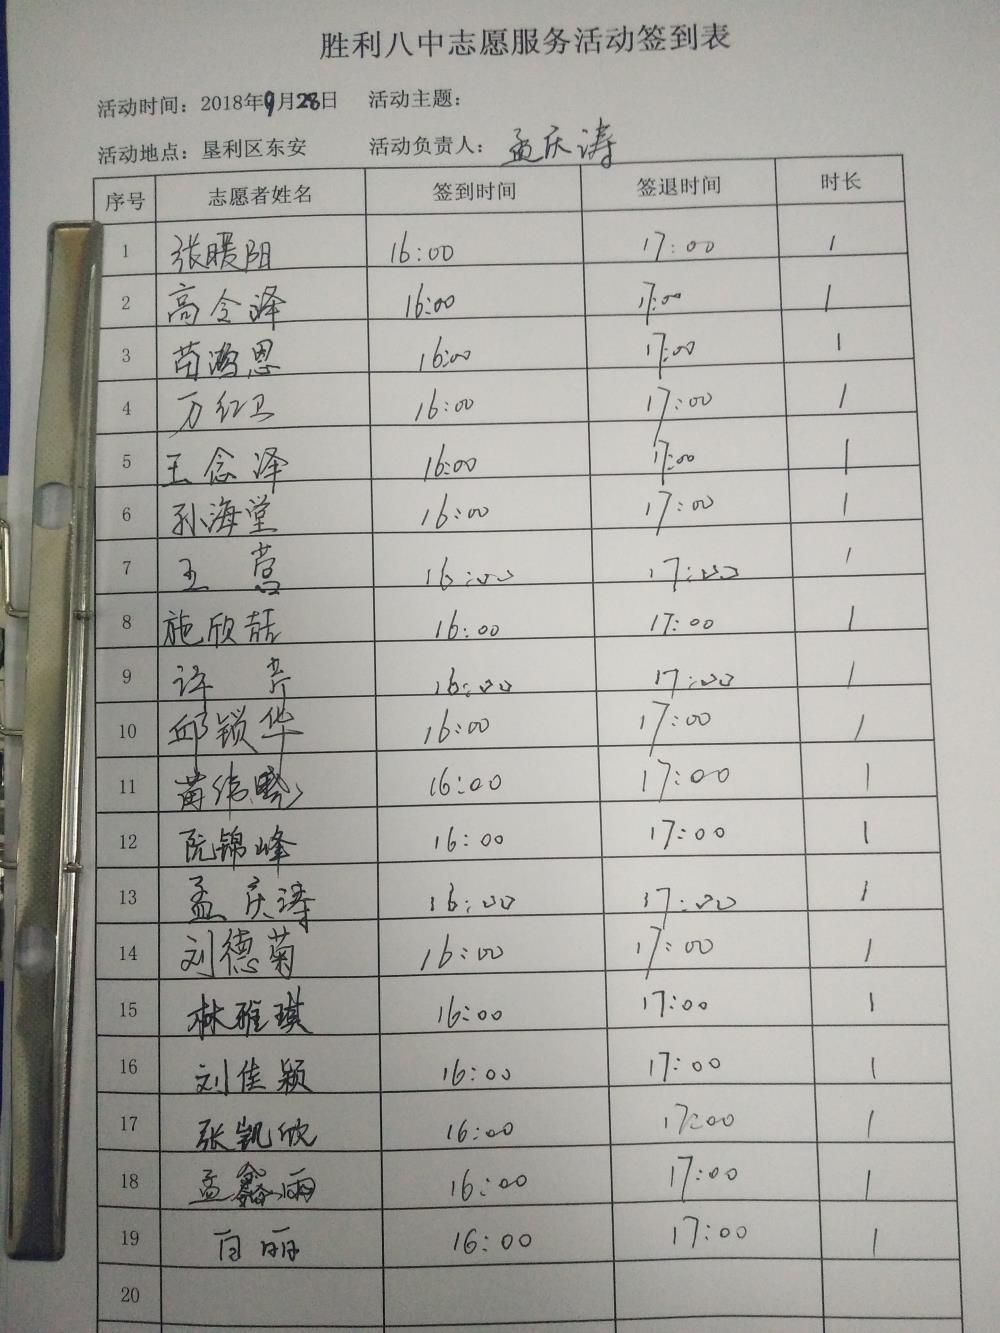 胜利八中志愿服务活动签到表
活动时间：2018年9月28日 活动主题：
活动地点：垦利区东安 活动负责人：孟庆涛
序号 志愿者姓名 签到时间 签退时间 时长
1 张暖阳 16:00 17:00 1
2 高令泽 16:00 17:00 1
3 苗鸿恩 16:00 17:00 1
4 万红卫 16:00 17:00 1
5 王念泽 16:00 17:00 1
6 孙海堂 16:00 17:00 1
7 王 16:00 17:00 1
8 施欣喆 16:00 17:00 1
9 许芹 16:00 17:00 1
10 邱锁华 16:00 17:00 1
11 16:00 17:00 1
12 阮锦峰 16:00 17:00 1
13 孟庆涛 16:00 17:00 1
14 刘德菊 16:00 17:00 1
15 林雅琪 16:00 17:00 1
16 刘佳颖 16:00 17:00 1
17 张凯欣 16:00 17:00 1
18 孟鑫雨 16:00 17:00 1
19 白丽 16:00 17:00 1
20